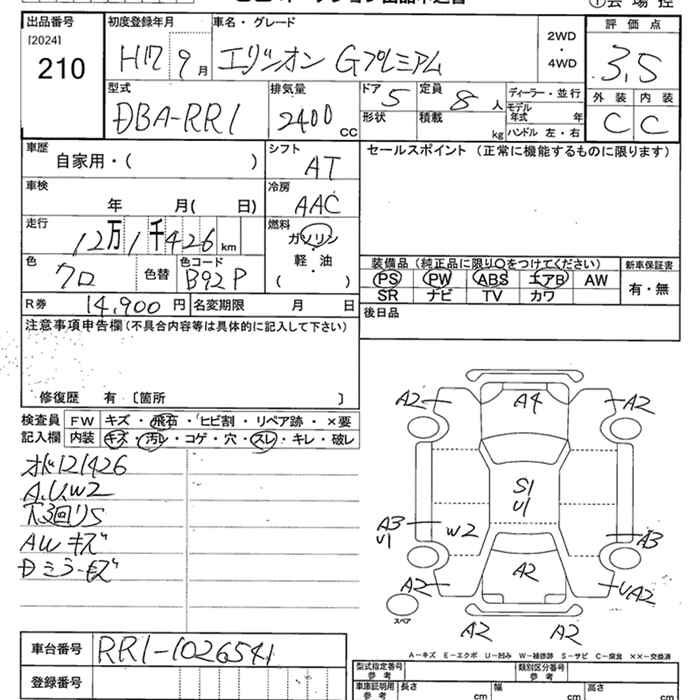 出品番号 初度登録年月 車名・グレード 評価点
[2024] 210 H17 9月 エリシオン Gプレミアム 2WD・4WD 3.5
型式 排気量 ドア 5 定員 8人 ディーラー・並行 外装 内装
DBA-RR1 2400 CC 形状 積載 kg モデル年式 年 ハンドル 左・右 C C
車歴 シフト セールスポイント (正常に機能するものに限ります)
自家用・( ) AT
車検 冷房
年 月( 日) AAC
走行 燃料
12万1千426km ガソリン
軽・油
( )
色 色コード 装備品(純正品に限り○をつけてください) 新車保証書
クロ 色替 B92P PS PW ABS エアB AW 有・無
SR ナビ TV カワ
R券 14,900円 名変期限 月 日 後日品
注意事項申告欄(不具合内容等は具体的に記入して下さい)
修復歴 有〔箇所 〕
検査員 FW キズ・飛石・ヒビ割・リペア跡・×要
記入欄 内装 キズ・汚レ・コゲ・穴・スレ・キレ・破レ
121426
A.U.W2
下廻りS
AWキズ
Dミラーキズ
A2 A4 A2
S1
U1
A3
U1 W2 A3
A2 A2 UA2
スペア
A2 A2
A-キズ E-エクボ U-凹み W-補修跡 S-サビ C-腐食 ××-交換済
車台番号 RR1-1026541
登録番号
型式指定番号 参考 類別区分番号 参考
車庫証明用 参考 長さ cm 幅 cm 高さ cm